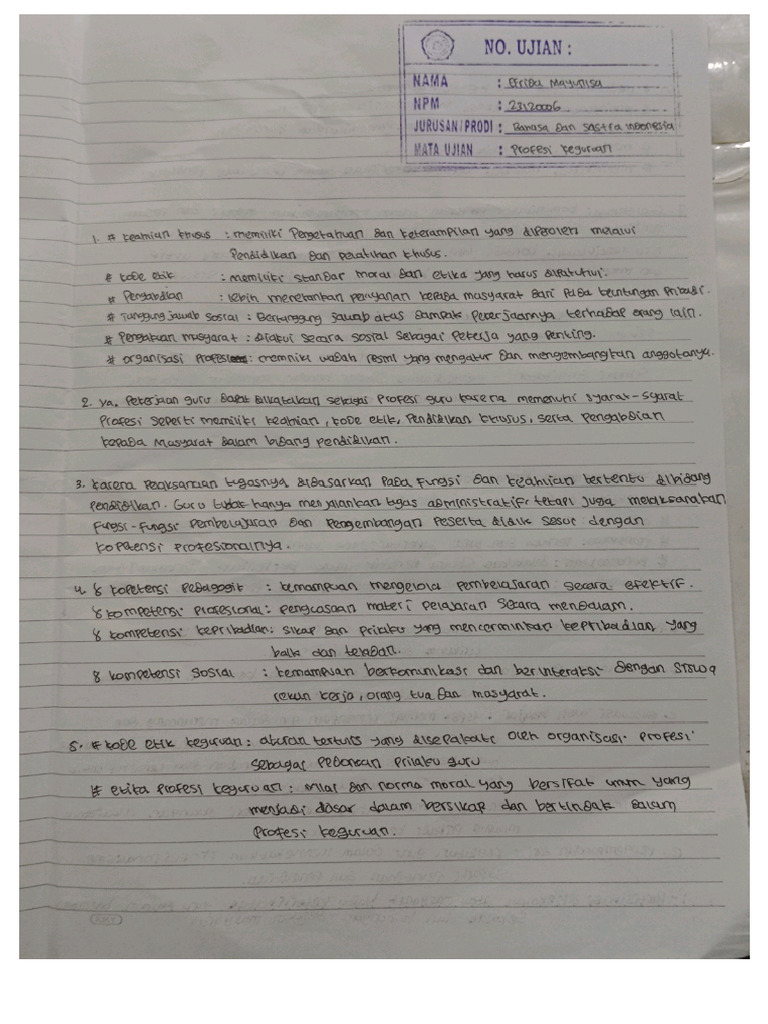 NO. UJIAN :
NAMA : Efrida Mayunisa
NPM : 23120006
JURUSAN/PRODI : Bahasa dan Sastra Indonesia
MATA UJIAN : Profesi keguruan
1. # keahlian khusus : memiliki Pengetahuan dan keterampilan yang diperoleh melalui
Pendidikan dan pelatihan khusus.
# kode etik : memiliki standar moral dan etika yang harus dipatuhi.
# Pengabdian : lebih menekankan pelayanan kepada masyarakat dari pada keuntungan Pribadi.
# Tanggung jawab sosial : Bertanggung jawab atas dampak pekerjaannya terhadap orang lain.
# Pengakuan masyarat : diakui secara sosial sebagai pekerja yang penting.
# organisasi Profesi : memiliki wadah resmi yang mengatur dan mengembangkan anggotanya.
2. ya. Pekerjaan guru dapat dikatakan sebagai Profesi guru karena memenuhi syarat-syarat
Profesi seperti memiliki keahlian, kode etik, Pendidikan khusus, serta Pengabdian
kepada masyarakat dalam bidang pendidikan.
3. karena pelaksanaan tugasnya didasarkan Pada Fungsi dan keahlian tertentu dibidang
Pendidikan. Guru tidak hanya menjalankan tugas administratif tetapi juga melaksanakan
Fungsi-Fungsi Pembelajaran dan Pengembangan Peserta didik sesuai dengan
kopetensi Profesionalnya.
4. § kopetensi Pedagogik : kemampuan mengelola pembelajaran secara efektif.
§ kompetensi Profesional : penguasaan materi pelajaran secara mendalam.
§ kompetensi kepribadian : sikap dan prilaku yang mencerminkan kepribadian yang
baik dan teladan.
§ kompetensi sosial : kemampuan berkomunikasi dan berinteraksi dengan siswa
rekan kerja, orang tua dan masyarat.
5. # kode etik keguruan : aturan tertulis yang disepakati oleh organisasi Profesi
sebagai Pedoman Prilaku guru
# etika profesi keguruan : nilai dan norma moral yang bersifat umum yang
menjadi dasar dalam bersikap dan bertindak dalam
Profesi keguruan.